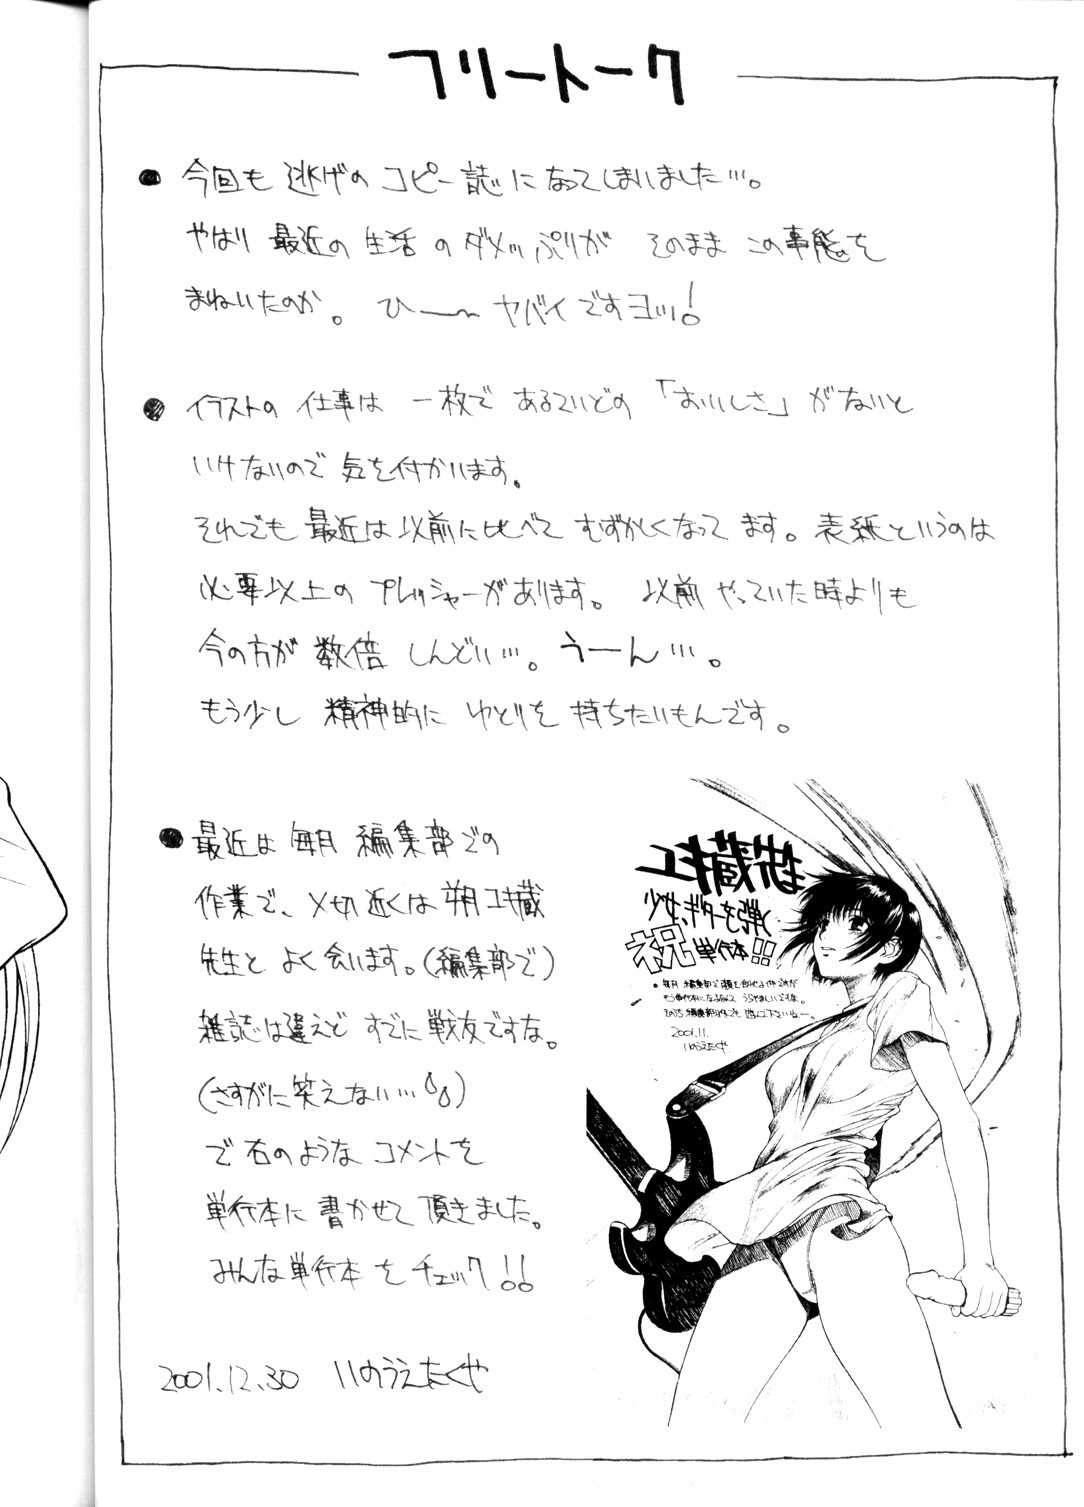 フリートーク
● 今回も 逃げの コピー誌に なってしまいました…。
やはり 最近の 生活 の ダメッぷりが そのまま この事態を
まねいたのか。 ひー〜 ヤバイですヨッ!
● イラストの 仕事は 一枚で あるていどの 「おいしさ」 がないと
いけないので 気を付かいます。
それでも 最近は 以前に比べて むずかしくなって ます。表紙というのは
必要以上の プレッシャーがあります。 以前 やっていた時よりも
今の方が 数倍 しんどい…。 うーん…。
もう少し 精神的に ゆとりを 持ちたいもんです。
● 最近は 毎月 編集部での
作業で、〆切近くは 朔ユキ蔵
先生と よく会います。(編集部で)
雑誌は違えど すでに 戦友ですな。
(さすがに笑えない…)
で 右のような コメントを
単行本に 書かせて 頂きました。
みんな単行本 を チェック!!
2001.12.30 いのうえたくや
ユキ蔵先生
少女、ギターを弾く
祝 単行本!!
● 毎月 編集部で顔を合わせる仲ですが
もう単行本になるなんて うらやましいですな。
2001.11.
いのうえたくや